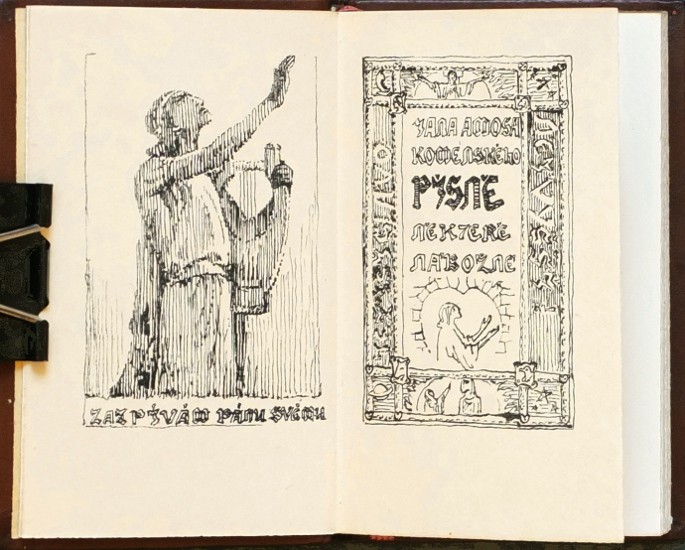 ZAZPÍVÁM PÁNU SVÉMU
JANA AMOSA
KOMENSKÉHO
PÍSNĚ
NĚKTERÉ
NÁBOŽNÉ